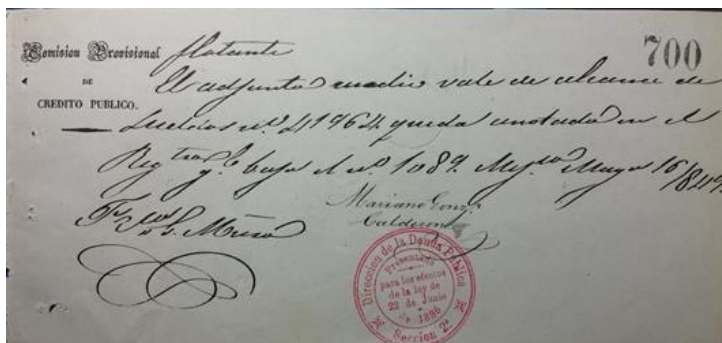 Comision Provisional
DE
CREDITO PUBLICO.
700
flotante
El adjunto medio vale de alcance de
Sueldos nº 41964 queda anotado en el
bajo el nº 1089. Mayo 16/
Mariano Gonz.
Calderon
Direccion de la Deuda Publica
Presentado
para los efectos
de la ley de
22 de Junio
de 1885
Seccion 2ª